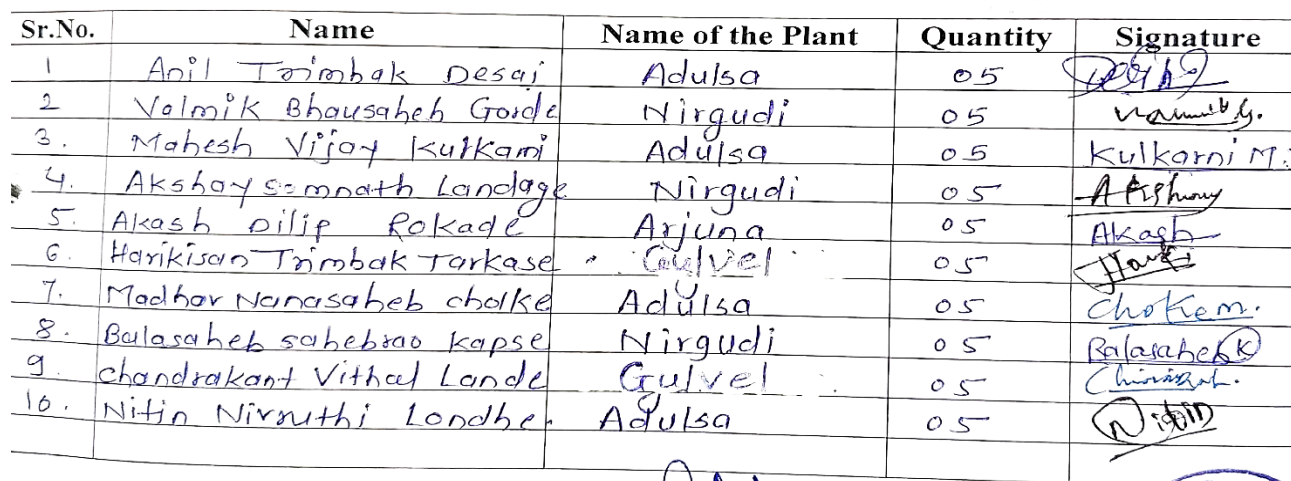 Sr.No. Name Name of the Plant Quantity Signature
1 Anil Trimbak Desai Adulsa 05
2 Valmik Bhausaheb Gorde Nirgudi 05
3. Mahesh Vijay Kulkarni Adulsa 05 Kulkarni M.
4. Akshay Somnath Landage Nirgudi 05 Akshay
5. Akash Dilip Rokade Arjuna 05 Akash
6. Harikisan Trimbak Tarkase Gulvel 05 Hari
7. Madhav Nanasaheb cholke Adulsa 05 Cholke m.
8. Balasaheb sahebrao kapse Nirgudi 05 Balasaheb K
9 chandrakant Vithal Lande Gulvel 05
10. Nitin Nivruthi Londhe. Adulsa 05 Nitin